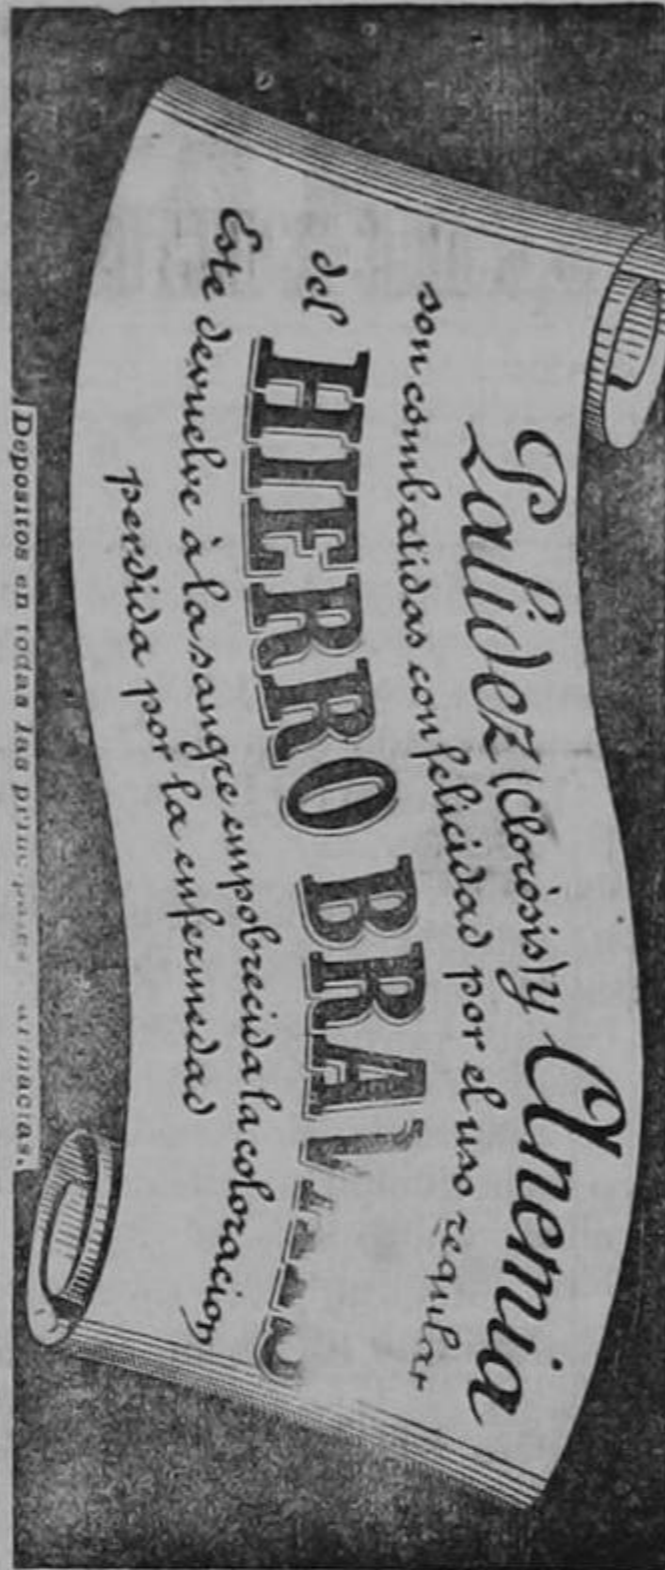 Palidez (Cloròsis) y Anemia
son combatidas con felicidad por el uso regular
del HIERRO
Este devuelve à la sangre empobrecida la coloracion
perdida por la enfermedad
Depositos en todas las